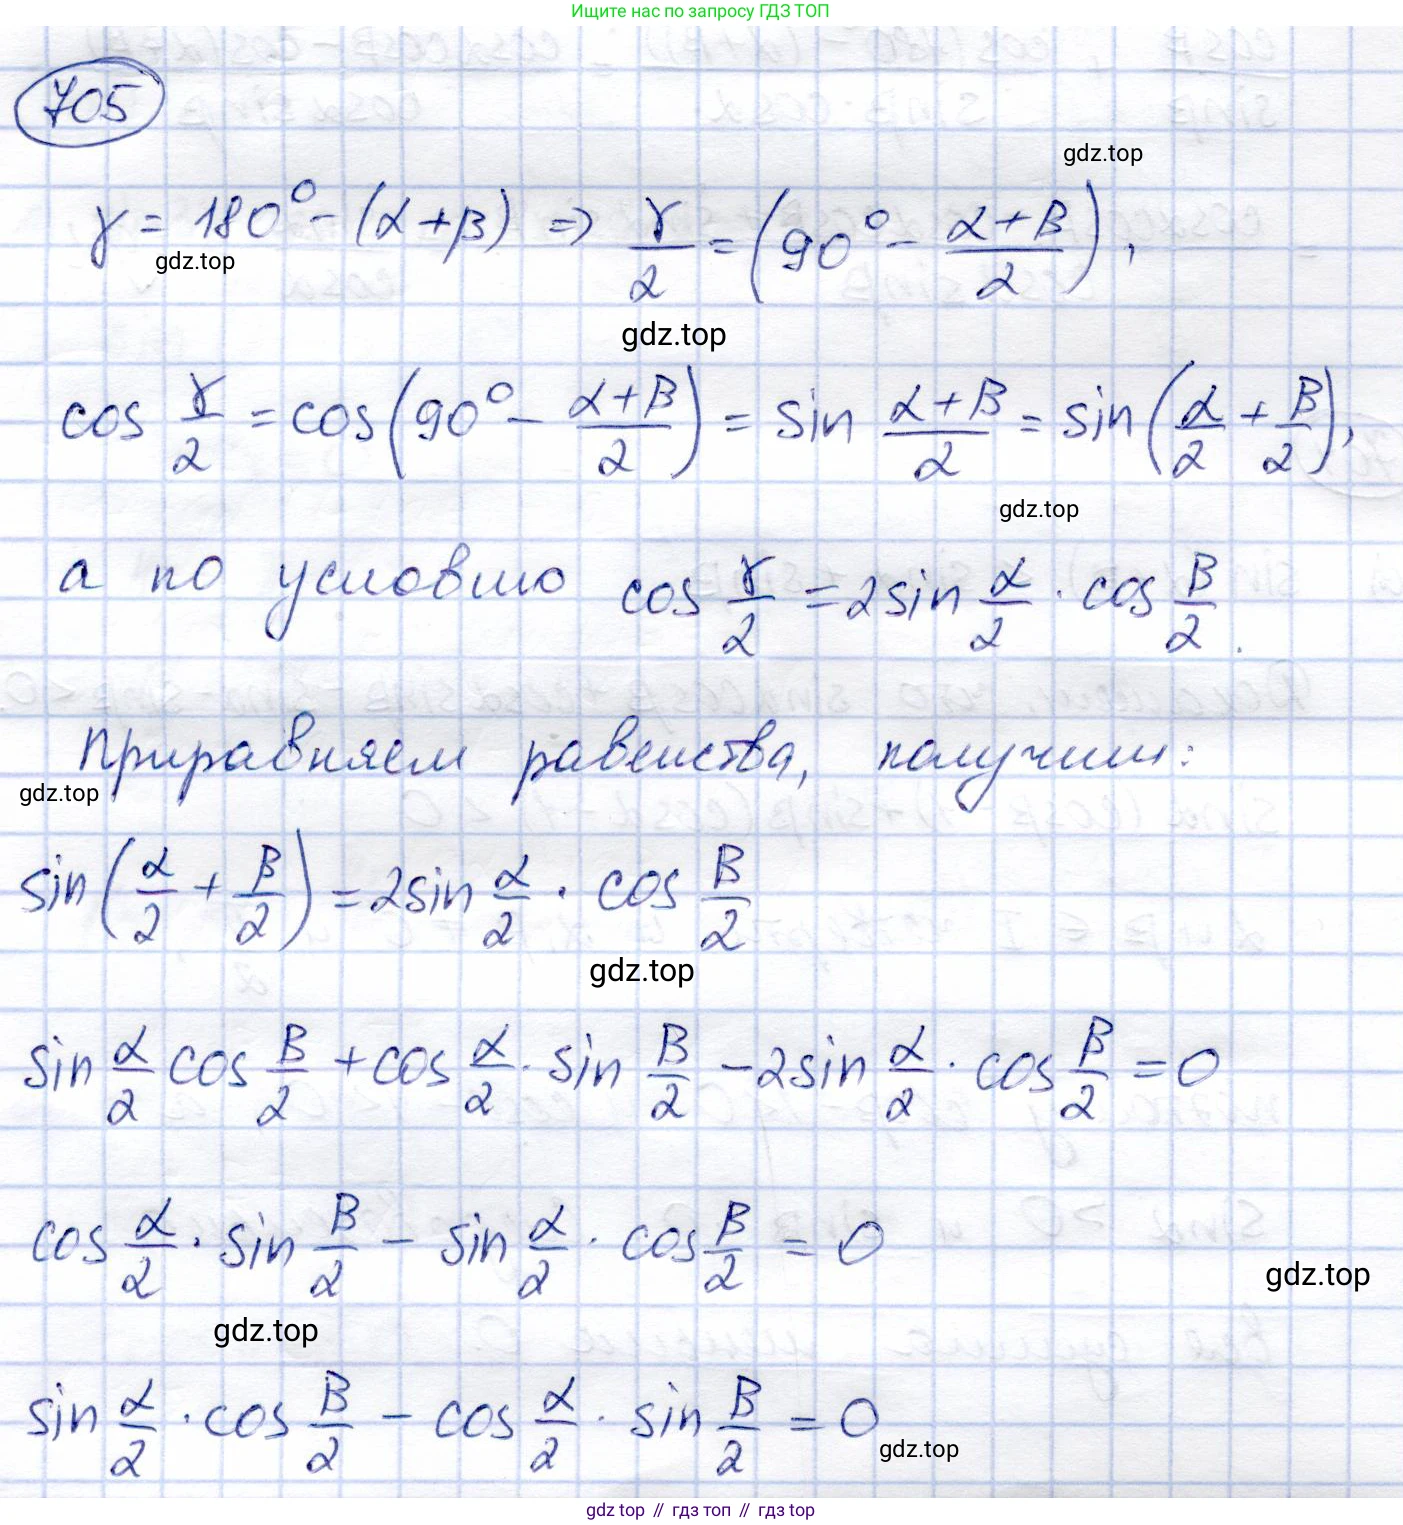 Ищите нас по запросу ГДЗ ТОП
705
gdz.top
γ = 180° - (α + β) ⇒ γ/2 = (90° - (α + β)/2),
gdz.top
gdz.top
cos γ/2 = cos(90° - (α + β)/2) = sin (α + β)/2 = sin(α/2 + β/2),
gdz.top
а по условию cos γ/2 = 2sin α/2 · cos β/2.
Приравняем равенства, получим:
gdz.top
sin(α/2 + β/2) = 2sin α/2 · cos β/2
gdz.top
sin α/2 cos β/2 + cos α/2 · sin β/2 - 2sin α/2 · cos β/2 = 0
cos α/2 · sin β/2 - sin α/2 · cos β/2 = 0
gdz.top
gdz.top
sin α/2 · cos β/2 - cos α/2 · sin β/2 = 0
gdz.top
gdz top // гдз топ // gdz top